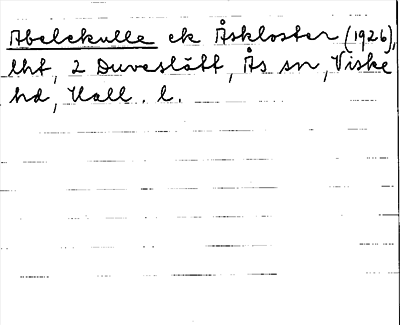 Abelekulle ek Åskloster (1926),
lht, 2 Duveslätt, Ås sn, Viske
hd, Hall. l.